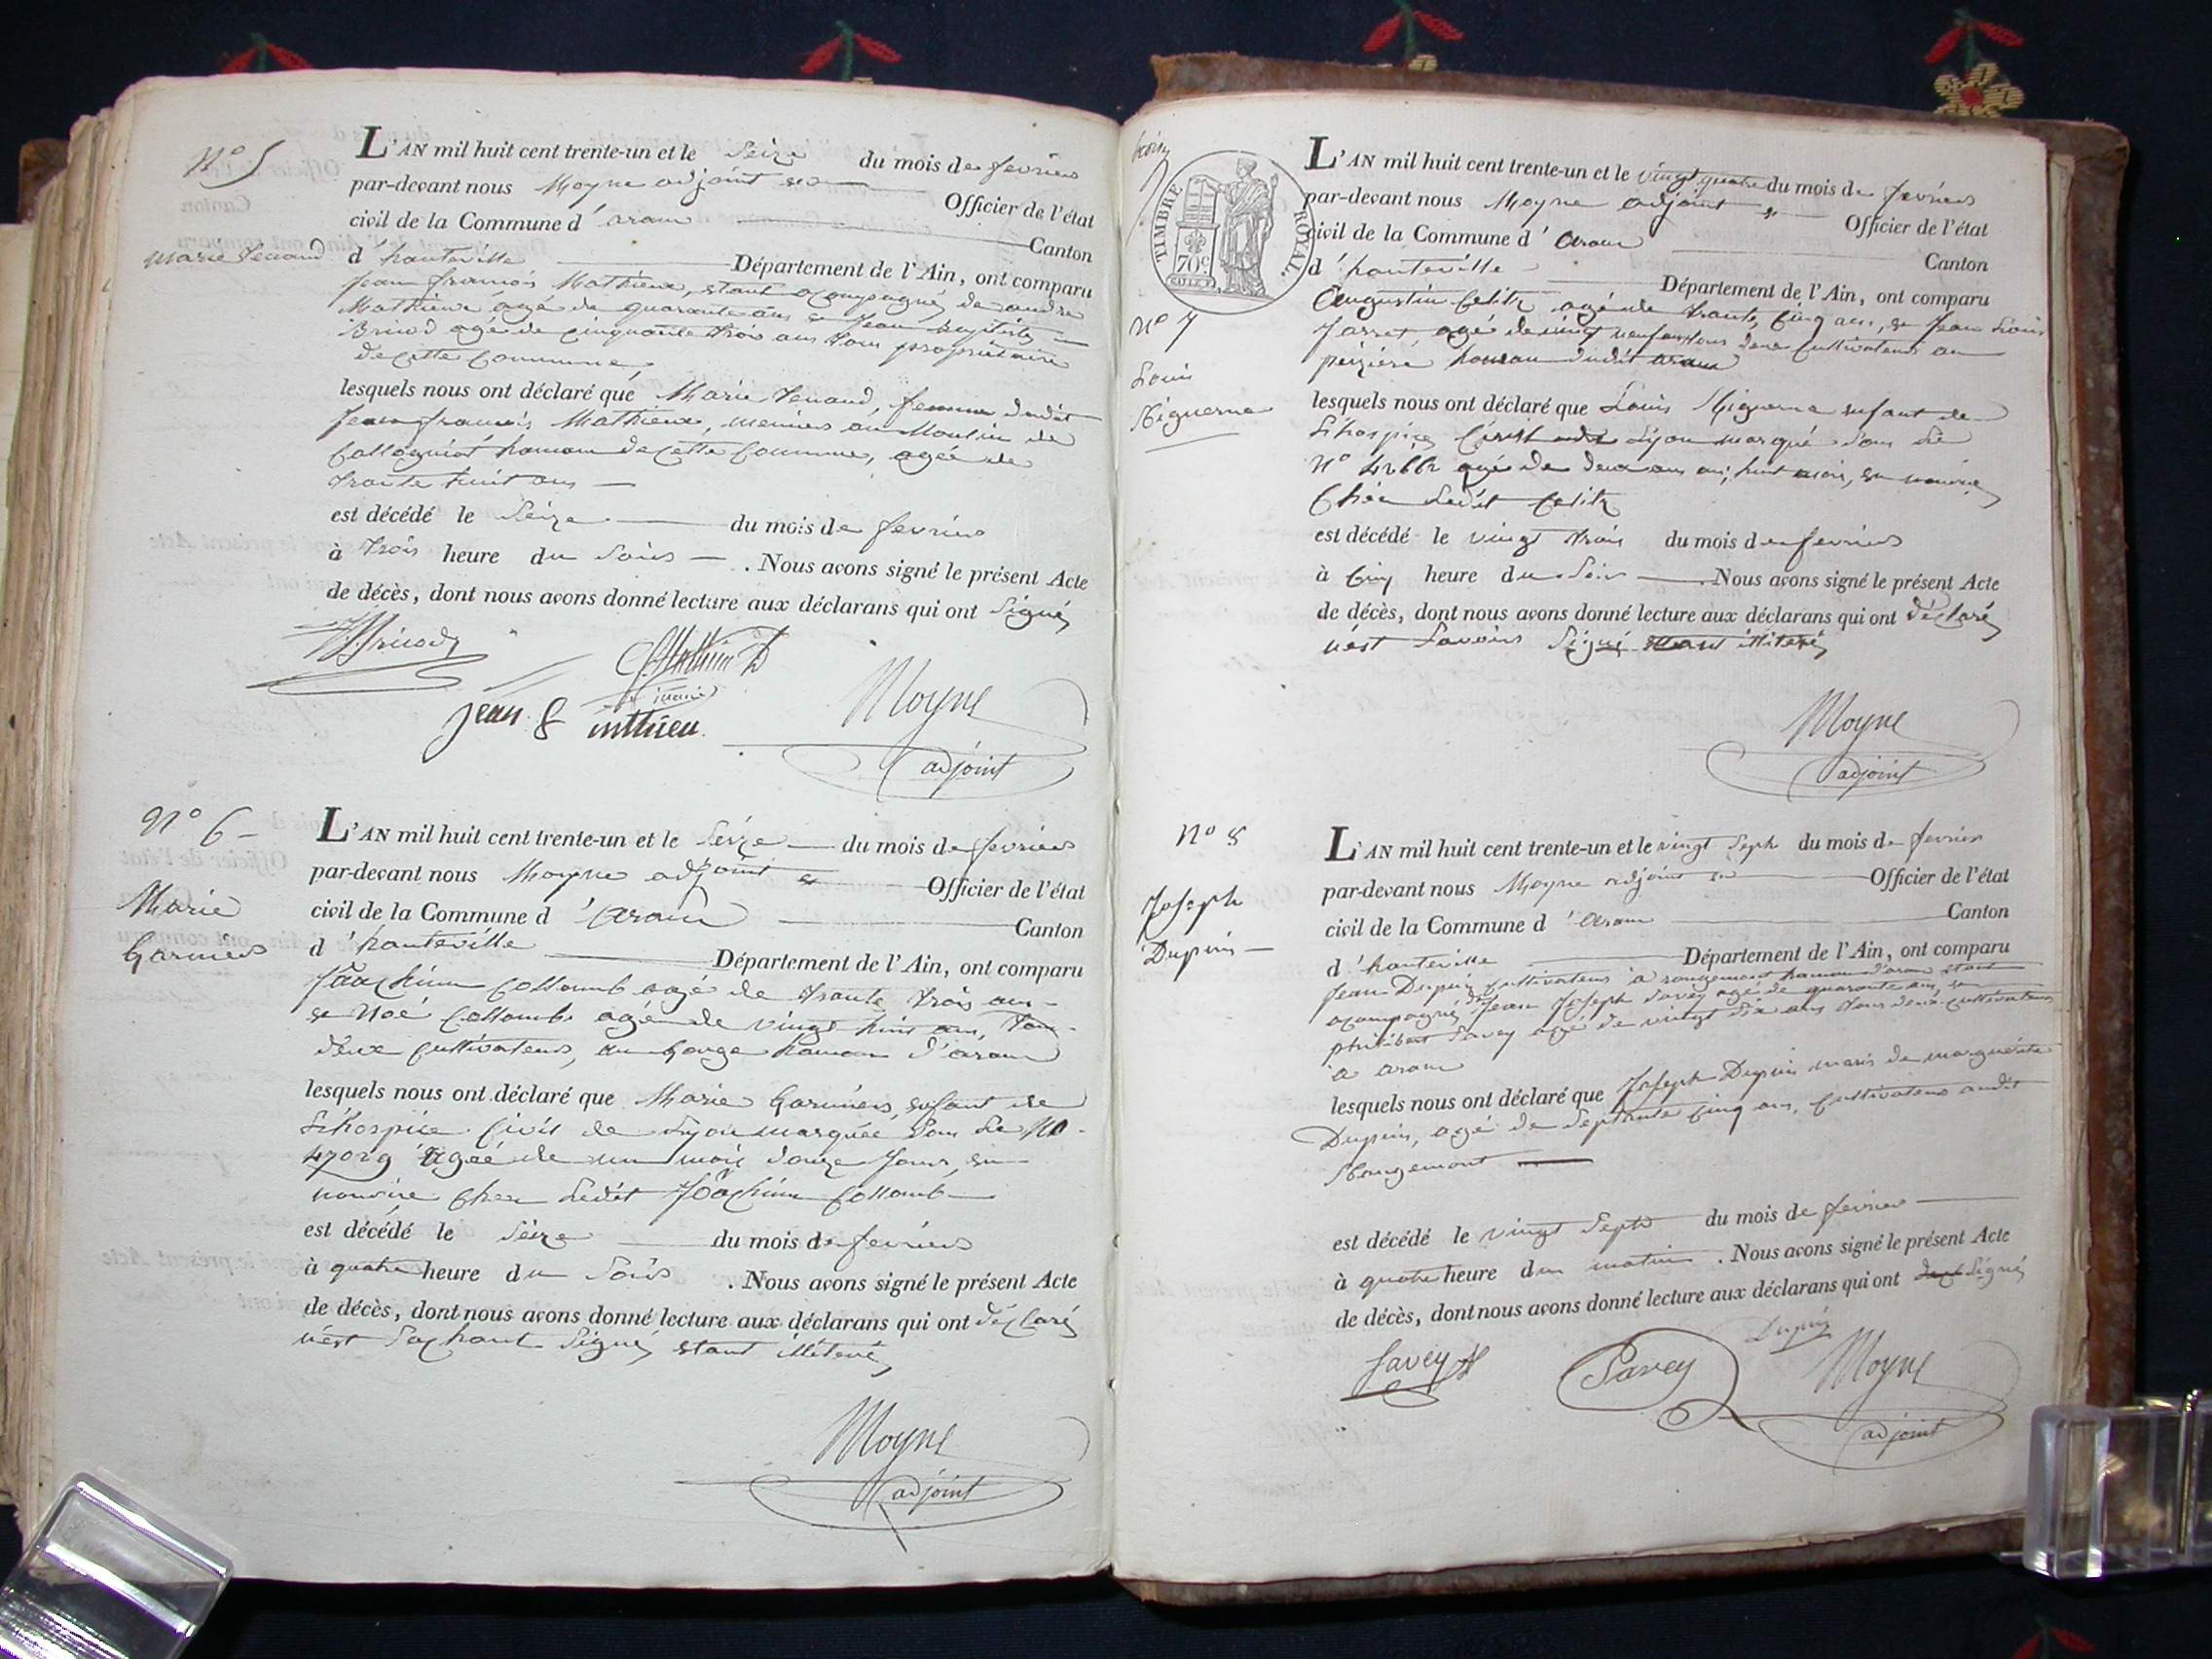 N° 5
Marie Tenand
L'AN mil huit cent trente-un et le Seize du mois de fevrier
par-devant nous Moyne adjoint Officier de l'état
civil de la Commune d'aranc Canton
d'hauteville Département de l'Ain, ont comparu
Jean francois Mathieux, etant acompagné de andre
Mathieux agé de quarante ans et Jean Baptiste
Bricod agé de cinquante trois ans tous proprietaire
de cette Commune,
lesquels nous ont déclaré que Marie Tenand, femme dudit
Jean francois Mathieux, meunier au Moulin de
hamau de cette Commune, ageé de
trante huit ans
est décédé le Seize du mois de fevrier
à trois heure du Soir . Nous avons signé le présent Acte
de décès, dont nous avons donné lecture aux déclarans qui ont Signé,
Bricod
Mathieu
Jean & mtthieu
Moyne
adjoint
N° 6
Marie
Garnier
L'AN mil huit cent trente-un et le Seize du mois de fevrier
par-devant nous Moyne adjoint Officier de l'état
civil de la Commune d'aranc Canton
d'hauteville Département de l'Ain, ont comparu
Joachim Collomb agé de trante trois ans
et Noé Collomb agé de vingt huit ans, tous
deux cultivateurs, hamau d'aranc
lesquels nous ont déclaré que Marie Garniers, enfant de
L'hospice Civil de Lyon marqueé Sous Le N°
47019 agéé de un mois douze Jours, en
nourice chez Ledit Joachim Collomb
est décédé le Seize du mois de fevriers
à quatre heure du Soir . Nous avons signé le présent Acte
de décès, dont nous avons donné lecture aux déclarans qui ont déclaré
n'est Sachant Signé, etant illiteré,
Moyne
adjoint
TIMBRE ROYAL
70c
N° 7
Louis
L'AN mil huit cent trente-un et le vingt quatre du mois de fevrier
par-devant nous Moyne adjoint Officier de l'état
civil de la Commune d'aranc Canton
d'hauteville Département de l'Ain, ont comparu
Augustin agé de trante cinq ans, et Jean Louis
Jarret, agé de vingt neuf ans tous deux cultivateurs au
hamau dudit aranc
lesquels nous ont déclaré que Louis enfant de
L'hospice Civil de Lyon marqué Sous Le
N° 42662 agé de deux ans huit mois, en nourice
Chez Ledit
est décédé le vingt trois du mois de fevrier
à Cinq heure du Soir . Nous avons signé le présent Acte
de décès, dont nous avons donné lecture aux déclarans qui ont déclaré
n'est Savoir Signé etant illiteré,
Moyne
adjoint
N° 8
Joseph
Dupuis
L'AN mil huit cent trente-un et le vingt Sept du mois de fevrier
par-devant nous Moyne adjoint Officier de l'état
civil de la Commune d'aranc Canton
d'hauteville Département de l'Ain, ont comparu
Jean Dupuis cultivateur à rougemont hamau d'aranc etant
acompagné de Jean Joseph Savey agé de quarante ans, et
philibert Savey agé de vingt Six ans tous deux cultivateurs
à aranc
lesquels nous ont déclaré que Joseph Dupuis maris de marguerite
Dupuis, agé de Septante Cinq ans, cultivateur audit
Rougemont
est décédé le vingt Sept du mois de fevrier
à quatre heure du matin . Nous avons signé le présent Acte
de décès, dont nous avons donné lecture aux déclarans qui ont Signé
Dupuis
Savey
Savey
Moyne
adjoint